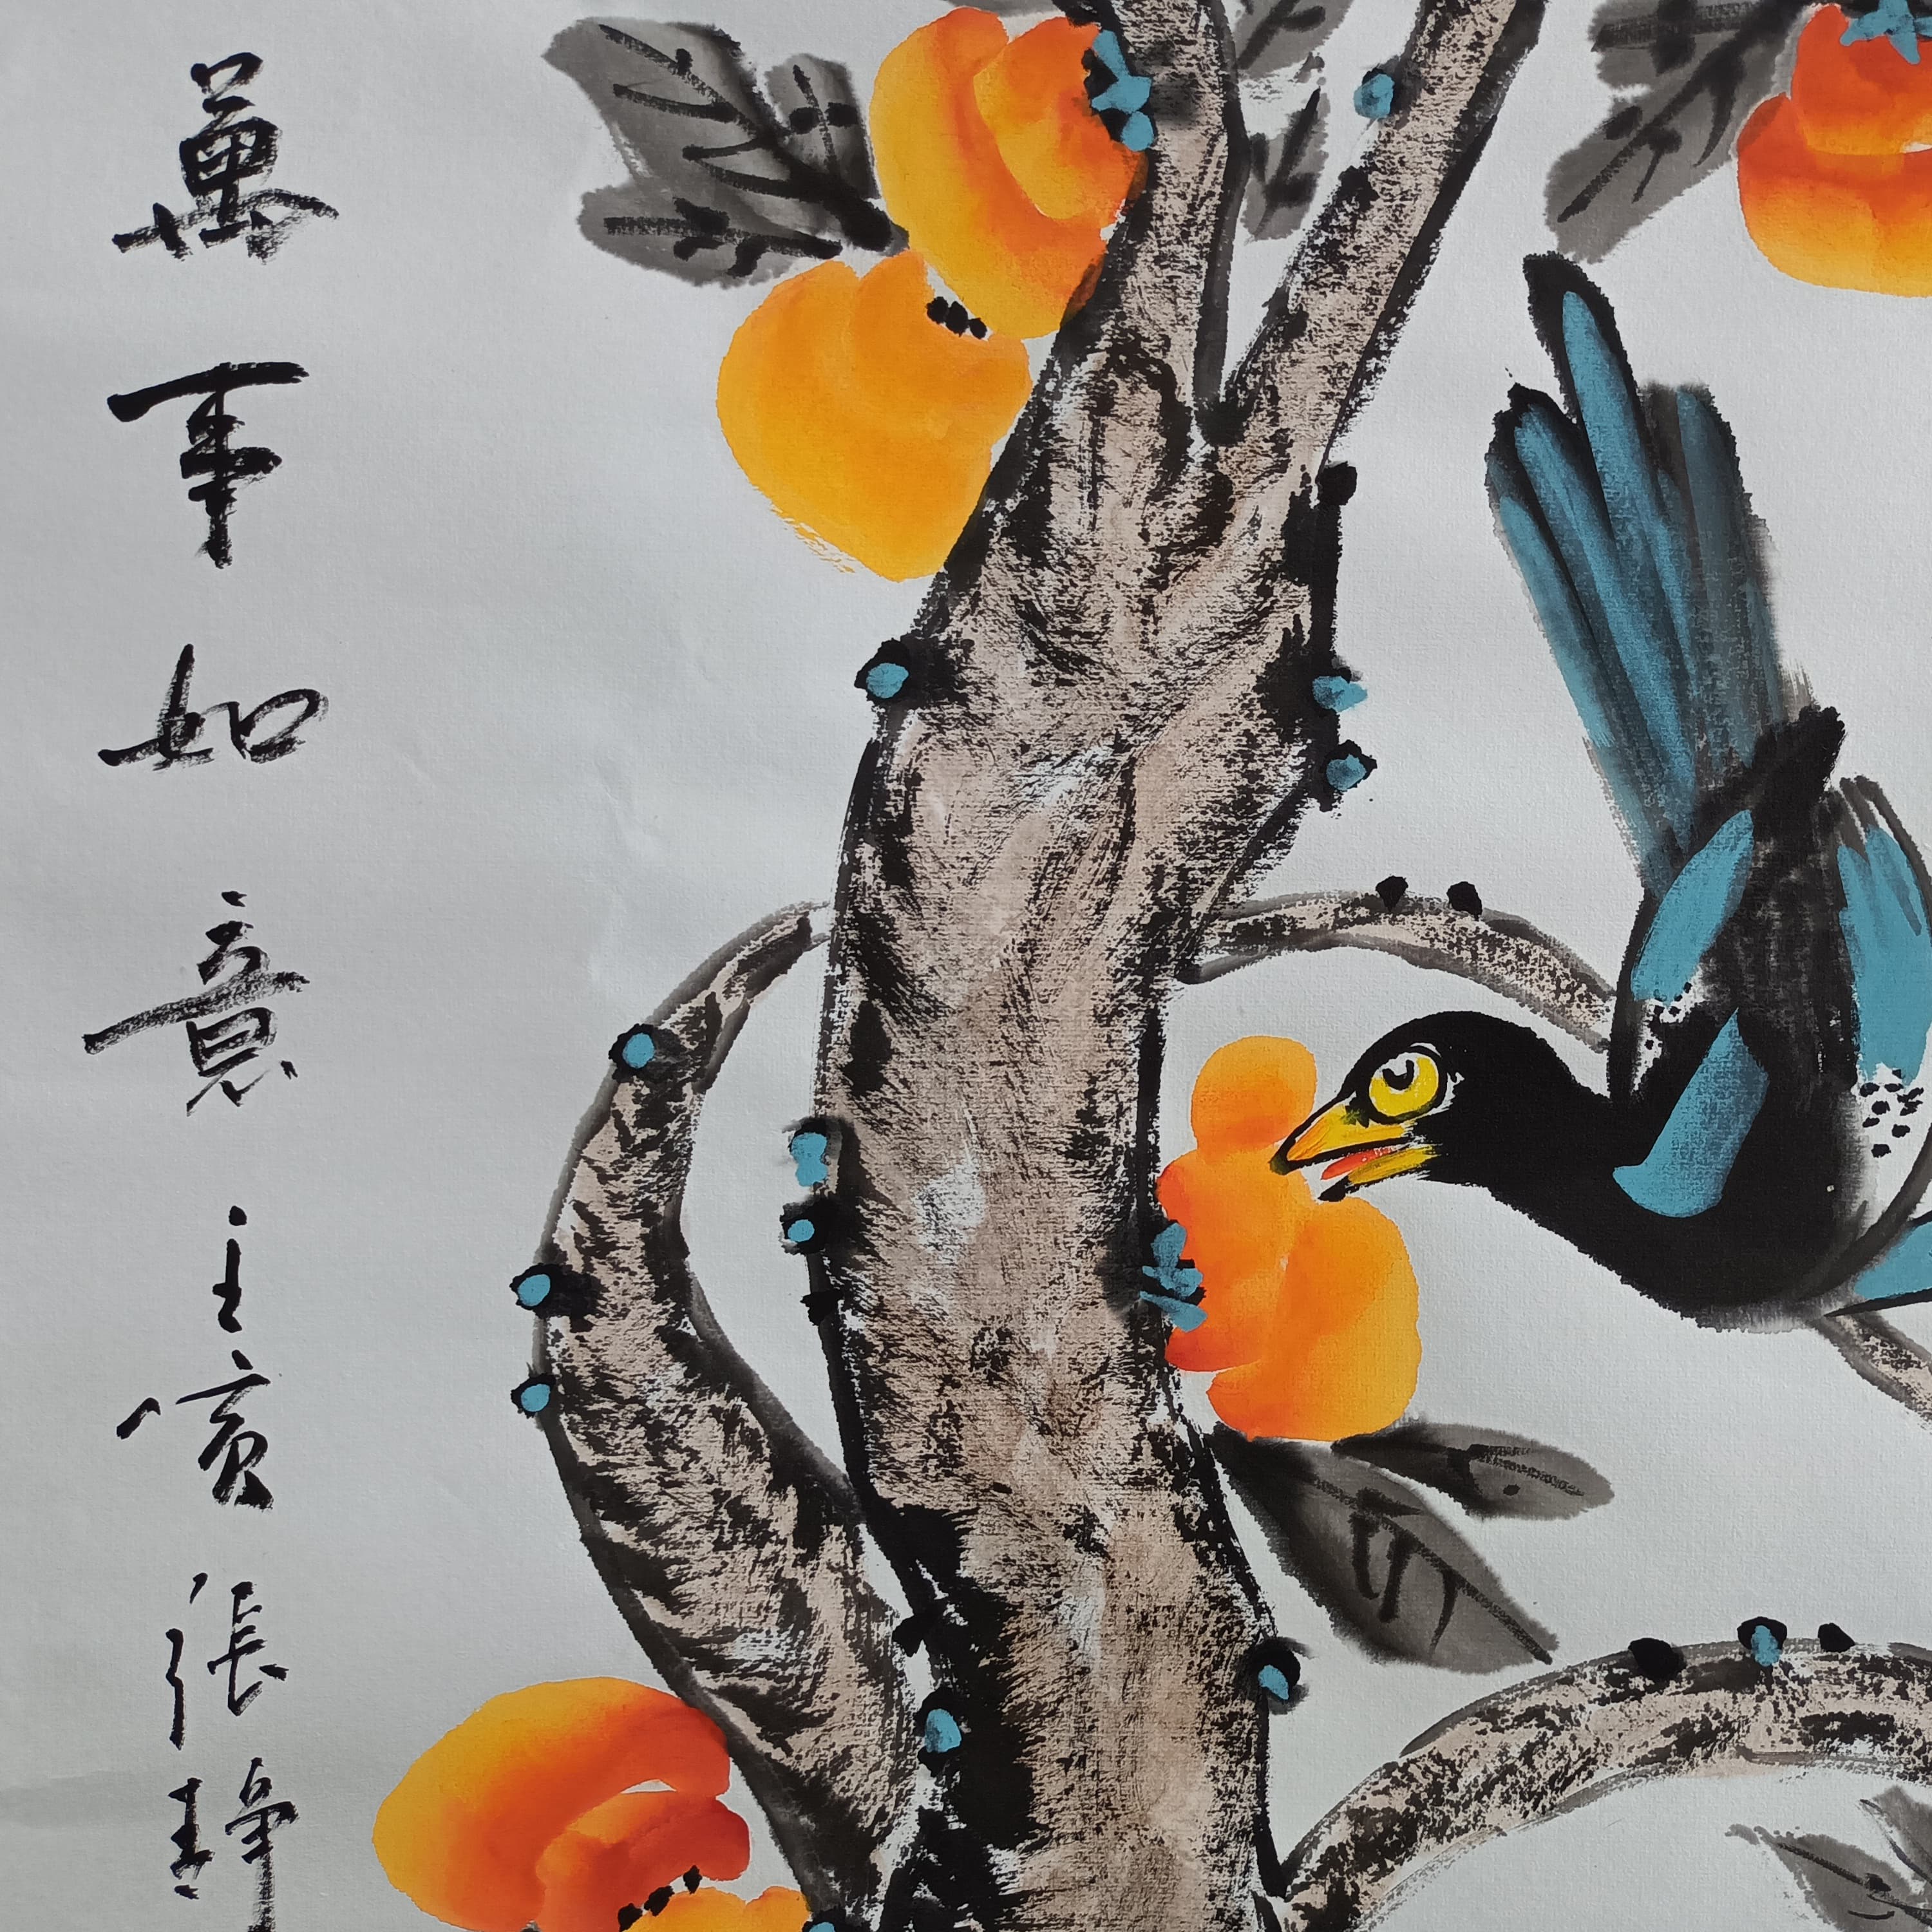 萬事如意壬寅張